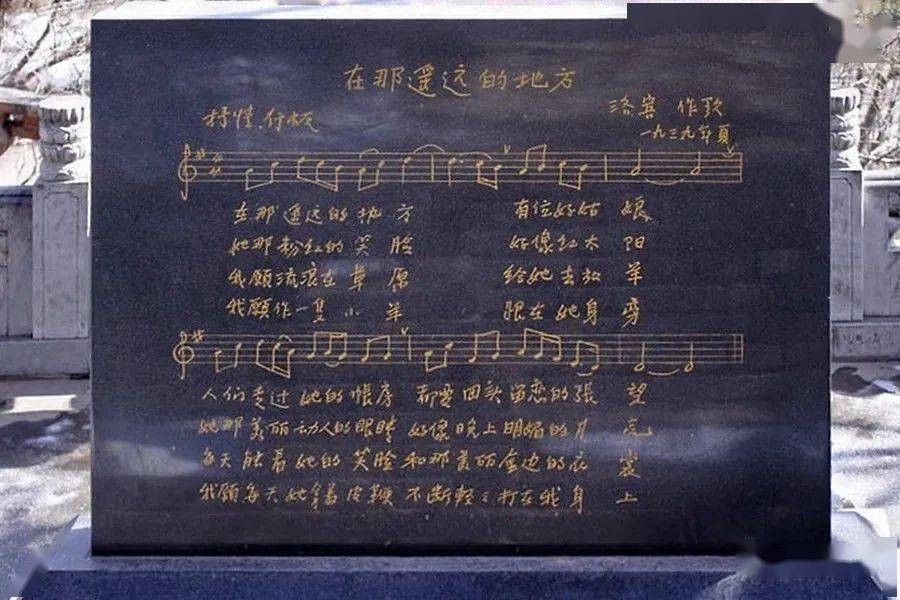 在那遥远的地方
抒情.行板
洛宾 作歌
一九三九年夏
在那遥远的地方 有位好姑娘
她那粉红的笑脸 好像红太阳
我願流浪在草原 给她去放羊
我願作一隻小羊 跟在她身旁
人们走过她的帳房 都要回头留恋的張望
她那美丽动人的眼睛 好像晚上明媚的月亮
每天能看她的笑脸和那美丽金边的衣裳
我願每天她拿着皮鞭 不斷轻々打在我身上